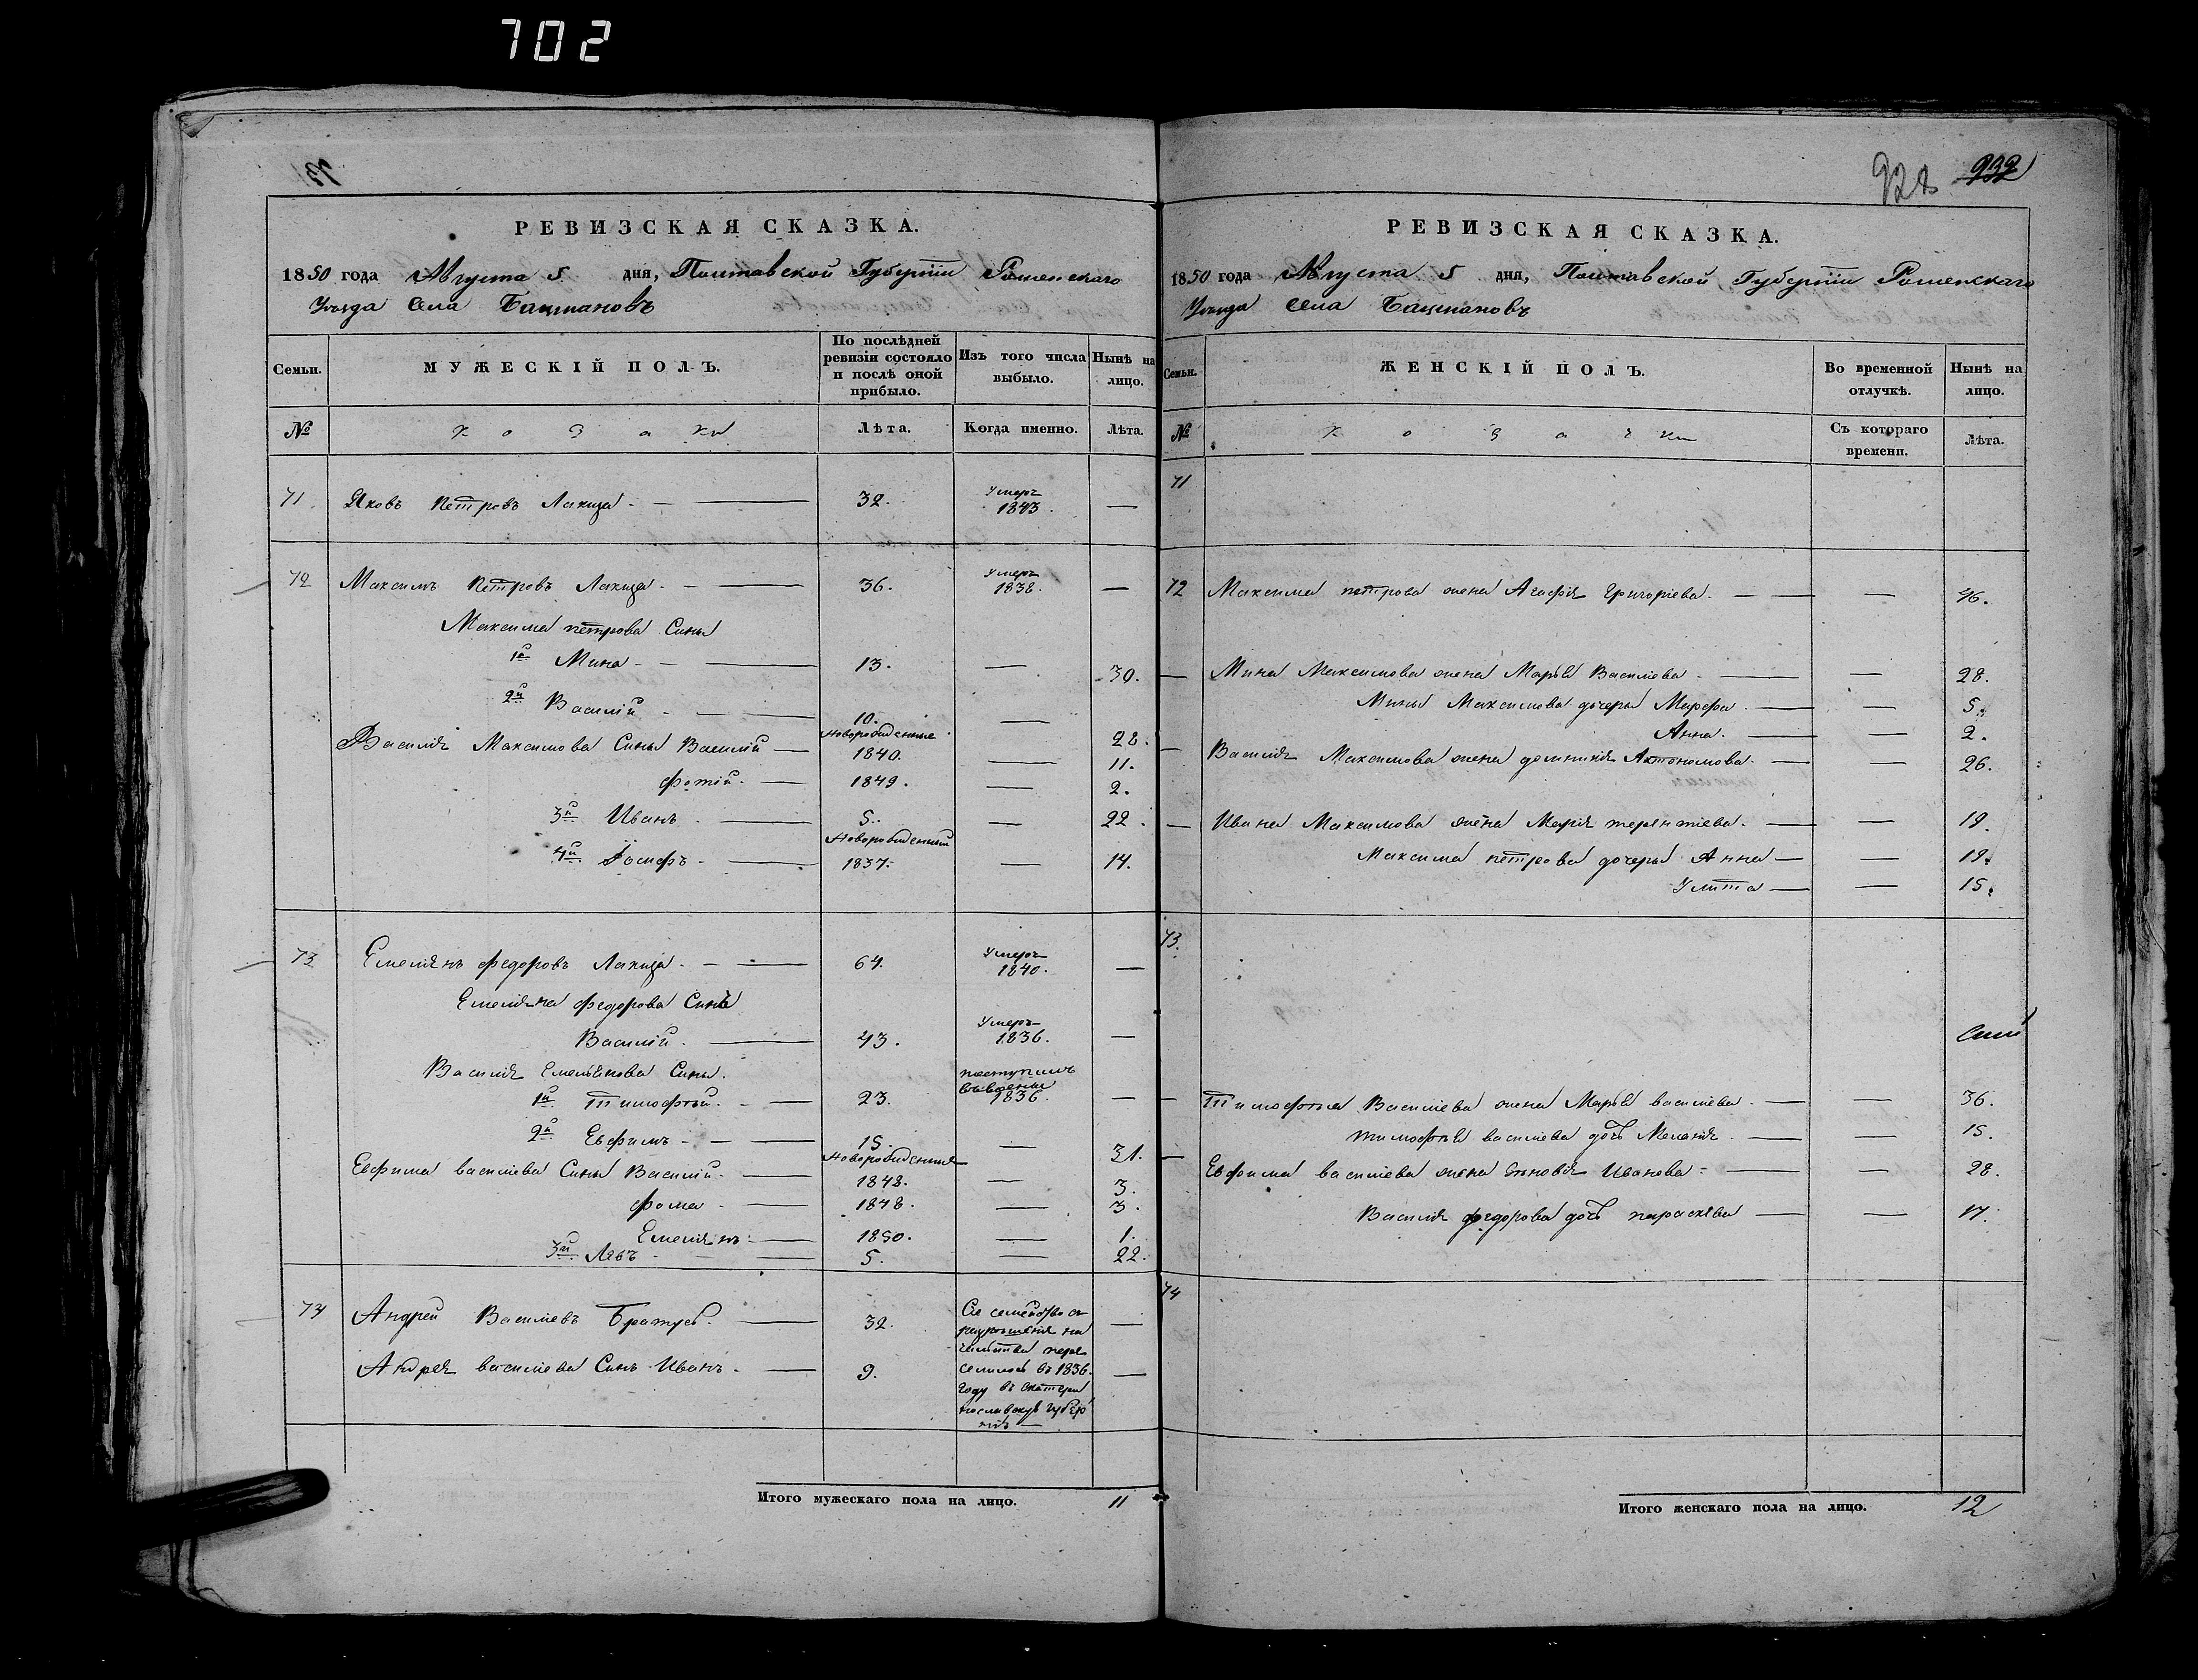 702
73
РЕВИЗСКАЯ СКАЗКА.
1850 года Августа 5 дня, Полтавской Губернiи Роменскаго
Уѣзда Села Бацмановъ
Семьи.
МУЖЕСКIЙ ПОЛЪ.
По послѣдней ревизiи состояло и послѣ оной прибыло.
Изъ того числа выбыло.
Нынѣ на лицо.
№
Козаки
Лѣта.
Когда именно.
Лѣта.
71 Яковъ Петровъ Лакиза 32. Умеръ 1843. —
72 Максимъ Петровъ Лакиза 36. Умеръ 1838. —
Максима петрова Сины
1й Мина 13. — 30.
2й Василiй 10. — 28.
Василiя Максимова Сины Василiй Новорожденные 1840. — 11.
Фотiй 1849. — 2.
3й Иванъ 5. — 22.
4й Iосифъ Новорожденный 1837. — 14.
73 Емелiянъ Федоровъ Лакиза 64. Умеръ 1840. —
Емелiяна Федорова Синъ
Василiй 43. Умеръ 1836. —
Василiя Емельянова Сины
1й Тимофѣй 23. поступилъ въ военные 1836. —
2й Евфимъ 15. — 31.
Евфима василiева Сины Василiй Новорожденные 1848. — 3.
Фома 1848. — 3.
Емелiянъ 1850. — 1.
3й Левъ 5. — 22.
74 Андрей Василiевъ Братусь 32. —
Андрея василiева Синъ Иванъ 9. —
Сiе семейство съ разрѣшенiя начальства переселилось въ 1836. году въ Екатеринославскую Губернiю
Итого мужескаго пола на лицо. 11
928 932
РЕВИЗСКАЯ СКАЗКА.
1850 года Августа 5 дня, Полтавской Губернiи Роменскаго
Уѣзда Села Бацмановъ
Семьи.
ЖЕНСКIЙ ПОЛЪ.
Во временной отлучкѣ.
Нынѣ на лицо.
№
Козачки
Съ котораго времени.
Лѣта.
71
72 Максима петрова жена Агафiя Григорiева — 46.
Мина Максимова жена Марья Василiева — 28.
Мины Максимова дочеры Марфа — 5.
Анна — 2.
Василiя Максимова жена домникiя Автономова — 26.
Ивана Максимова жена Марiя терентiева — 19.
Максима петрова дочеры Анна — 19.
Улита — 15.
73.
Тимофѣя Василiева жена Марья василiева — 36.
тимофѣя василiева дочь Меланiя — 15.
Евфима василiева жена Зѣновiя Иванова — 28.
Василiя федорова дочь параскева — 17.
74
Итого женскаго пола на лицо. 12